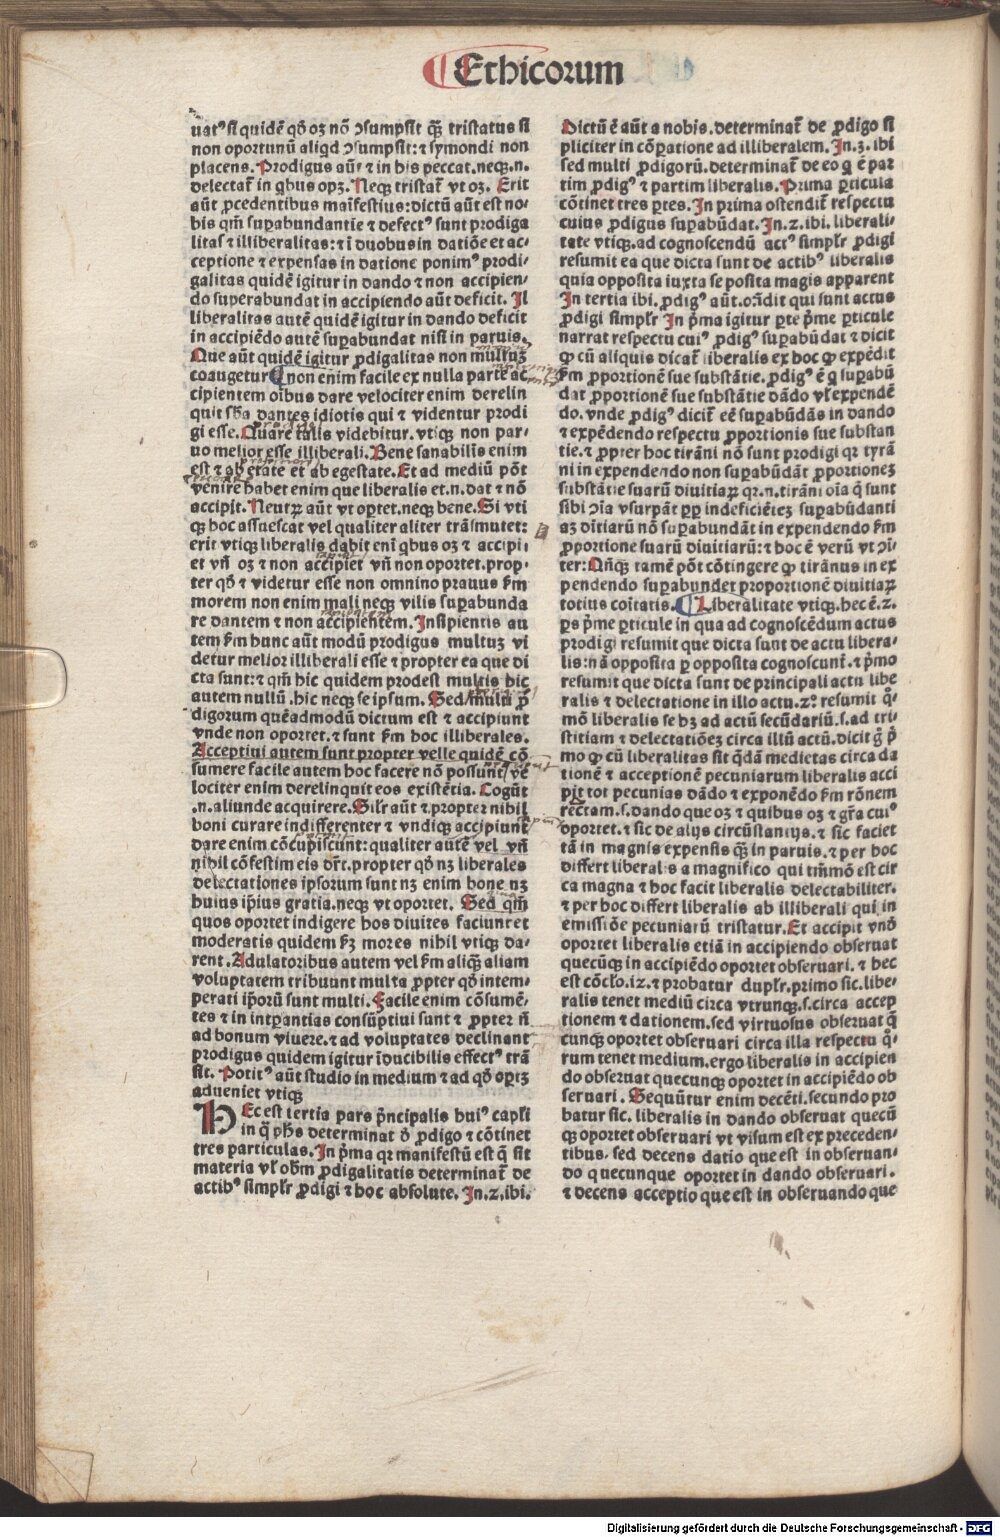 Ethicorum
uatꝰ si quidē qđ oꝫ nō ↄsumpsit q̄ꝫ tristatus si
non oportunū aliqd ↄsumpsit: ⁊ symondi non
placens. Prodigus aūt ⁊ in his peccat. neqꝫ .n.
delectat̄ in qbus opꝫ. Neqꝫ tristat̄ vt oꝫ. Erit
aūt ꝓcedentibus maīfestius: dictū aūt est no-
bis qm̄ suꝑabundantie ⁊ defectꝰ sunt prodiga
litas ⁊ illiberalitas: ⁊ ī duobus in datiōe et ac-
ceptione ⁊ expensas in datione ponimꝰ prodi-
galitas quidē igitur in dando ⁊ non accipien-
do superabundat in accipiendo aūt deficit. Il
liberalitas autē quidē igitur in dando deficit
in accipiēdo autē suꝑabundat nisi in paruis.
Que aūt quidē igitur ꝓdigalitas non multuꝫ
coaugetur non enim facile ex nulla parte ac
cipientem oībus dare velociter enim derelin
quit sb̄a dantes idiotis qui ⁊ videntur prodi
gi esse. Quare talis videbitur. vtiqꝫ non par-
uo melior esse illiberali. Bene sanabilis enim
est ⁊ ab etate et ab egestate. Et ad mediū pōt
venire habet enim que liberalis et .n. dat ⁊ nō
accipit. Neutꝝ aūt vt oꝑtet. neqꝫ bene. Si vti
qꝫ hoc assuescat vel qualiter aliter trāsmutet:
erit vtiqꝫ liberalis dabit enī qbus oꝫ ⁊ accipi,
et vn̄ oꝫ ⁊ non accipiet vn̄ non oportet. prop-
ter qđ ⁊ videtur esse non omnino prauus ẜm
morem non enim mali neqꝫ vilis suꝑabunda
re dantem ⁊ non accipientem. Insipientis au
tem ẜm hunc aūt modū prodigus multuꝫ vi
detur melior illiberali esse ⁊ propter ea que di
cta sunt: ⁊ qm̄ hic quidem prodest multis hic
autem nullū. hic neqꝫ seipsum. Sed multi ꝓ
digorum quēadmodū dictum est ⁊ accipiunt
vnde non oportet. ⁊ sunt ẜm hoc illiberales.
Acceptiui autem sunt propter velle quidē cō
sumere facile autem hoc facere nō possunt ve
lociter enim derelinquit eos existētia. Cogūt
.n. aliunde acquirere. Sil̓r aūt ⁊ propter nihil
boni curare indifferenter ⁊ vndiqꝫ accipiunt
dare enim cōcupiscunt: qualiter autē vel vn̄
nihil cōfestim eis dr̄t. propter qđ nꝫ liberales
delectationes ipsorum sunt nꝫ enim bone nꝫ
huius ip̄ius gratia. neqꝫ vt oportet. Sed qm̄
quos oportet indigere hos diuites faciunt et
moderatis quidem ẜꝫ mores nihil vtiqꝫ da-
rent. Adulatoribus autem vel ẜm aliq̄ꝫ aliam
voluptatem tribuunt multa ꝓpter qđ intem-
perati ip̄orū sunt multi. Facile enim cōsumē-
tes ⁊ in intꝑantias consūptiui sunt ⁊ ꝓpter n̄
ad bonum viuere. ⁊ ad voluptates declinant
prodigus quidem igitur īducibilis effectꝰ trā
sit. Potitꝰ aūt studio in medium ⁊ ad qđ oꝑtꝫ
adueniet vtiqꝫ
HEc est tertia pars p̄ncipalis huiꝰ capl̓i
in q̄ ph̄s determinat ð ꝓdigo ⁊ cōtinet
tres particulas. In p̄ma qꝛ manifestū est q̄ sit
materia vl̓ obm̄ ꝓdigalitatis determinat̄ de
actibꝰ simpl̓r ꝓdigi ⁊ hoc absolute. In .2. ibi.
Dictū ē aūt a nobis. determinat̄ de ꝓdigo si
pliciter in cōꝑatione ad illiberalem. In .3. ibi
sed multi ꝓdigorū. determinat̄ de eo q ē par
tim ꝓdigꝰ ⁊ partim liberalis. Prima ꝑticula
cōtinet tres ꝑtes. In prima ostendit̄ respectu
cuius ꝓdigus suꝑabūdat. In .2. ibi. liberali-
tate vtiqꝫ. ad cognoscendū actꝰ simpl̓r ꝓdigi
resumit ea que dicta sunt de actibꝰ liberalis
quia opposita iuxta se posita magis apparent
In tertia ibi. ꝓdigꝰ aūt. oñdit qui sunt actus
ꝓdigi simpl̓r In p̄ma igitur ꝑte p̄me ꝑticule
narrat respectu cuiꝰ ꝓdigꝰ suꝑabūdat ⁊ dicit
ꝙ cū aliquis dicat̄ liberalis ex hoc ꝙ expēdit
ẜm ꝓportionē sue substātie. ꝓdigꝰ ē q suꝑabū
dat ꝓportionē sue substātie dādo vl̓ expendē
do. vnde ꝓdigꝰ dicit̄ eē suꝑabūdās in dando
⁊ expēdendo respectu ꝓportionis sue substan
tie. ⁊ ꝓpter hoc tirāni nō sunt prodigi qꝛ tyrā
ni in expendendo non suꝑabūdāt ꝓportioneꝫ
substātie suarū diuitiaꝝ qꝛ .n. tirāni oīa q̄ sunt
sibi ↄīa vsurpāt ꝓꝑ indeficiētēꝫ suꝑabūdanti
aꝫ diuitiarū nō suꝑabundāt in expendendo ẜm
ꝓportionē suarū diuitiarū: ⁊ hoc ē verū vt ↄī-
ter: Qn̄qꝫ tamē pōt cōtingere ꝙ tirānus in ex
pendendo suꝑabundet proportionē diuitiaꝝ
totius coītatis. Liberalitate vtiqꝫ. hec ē .2.
ꝑs p̄me ꝑticule in qua ad cognoscēdum actus
prodigi resumit que dicta sunt de actu libera-
lis: nā opposita ꝑ opposita cognoscunt̄. ⁊ p̄mo
resumit que dicta sunt de principali actu libe
ralis ⁊ delectatione in illo actu. 2º resumit q̄-
mō liberalis se hꝫ ad actū secūdariū .s. ad tri-
stitiam ⁊ delectatiōeꝫ circa illū actū. dicit ḡ p̄
mo ꝙ cū liberalitas sit q̄dā medietas circa da
tionē ⁊ acceptionē pecuniarum liberalis acci
pit tot pecunias dādo ⁊ exponēdo ẜm rōnem
rectam .s. dando que oꝫ ⁊ quibus oꝫ ⁊ gr̄a cuiꝰ
oportet. ⁊ sic de alijs circūstantijs. ⁊ sic faciet
tā in magnis expensis q̄ꝫ in paruis. ⁊ per hoc
differt liberalis a magnifico qui tm̄mō est cir
ca magna ⁊ hoc facit liberalis delectabiliter.
⁊ per hoc differt liberalis ab illiberali qui in
emissiōe pecuniarū tristatur. Et accipit vnđ
oportet liberalis etiā in accipiendo obseruat
quecūqꝫ in accipiēdo oportet obseruari. ⁊ hec
est cōcl̓o .i2. ⁊ probatur dupl̓r. primo sic. libe-
ralis tenet mediū circa vtrunqꝫ .s. circa accep
tionem ⁊ dationem. sed virtuosus obseruat q̄
cunqꝫ oportet obseruari circa illa respectu q̄-
rum tenet medium. ergo liberalis in accipien
do obseruat quecunqꝫ oportet in accipiēdo ob
seruari. Sequūtur enim decēti. secundo pro
batur sic. liberalis in dando obseruat quecū
qꝫ oportet obseruari vt visum est ex preceden-
tibus. sed decens datio que est in obseruan-
do quecunque oportet in dando obseruari.
⁊ decens acceptio que est in obseruando que
Digitalisierung gefördert durch die Deutsche Forschungsgemeinschaft - DFG